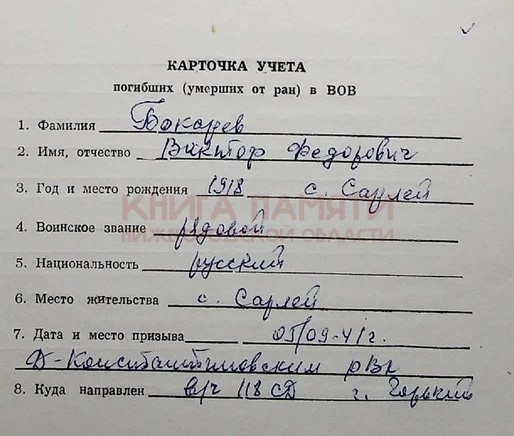 КАРТОЧКА УЧЕТА
погибших (умерших от ран) в ВОВ
1. Фамилия Бокарев
2. Имя, отчество Виктор Федорович
3. Год и место рождения 1918 с. Сарлей
КНИГА ПАМЯТИ
4. Воинское звание рядовой
НИЖЕГОРОДСКОЙ ОБЛАСТИ
5. Национальность русский
6. Место жительства с. Сарлей
7. Дата и место призыва 05/09-41г.
Д-Константиновским рвк
8. Куда направлен в/ч 118 СД г. Горький